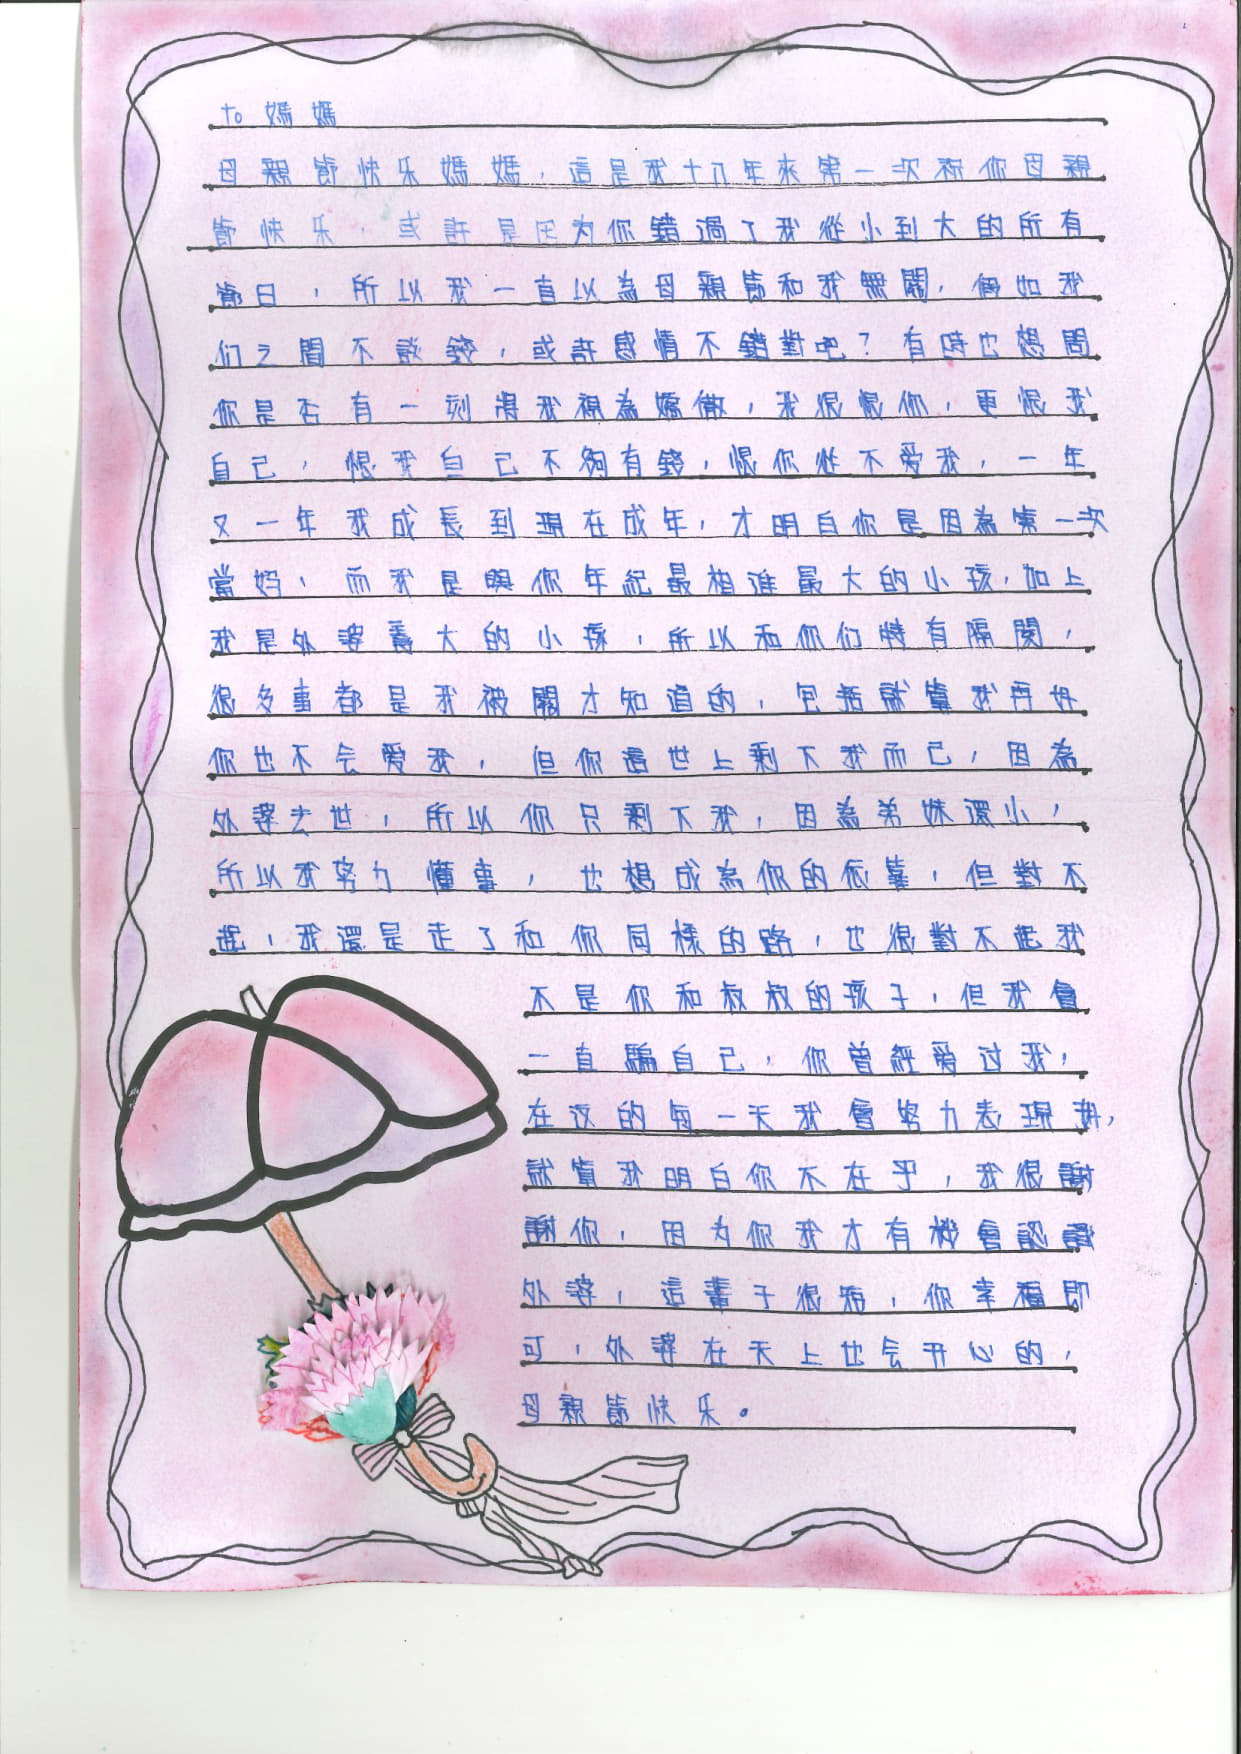 To 媽媽
母親節快乐媽媽，這是我十八年來第一次祝你母親
節快乐，或許是因为你錯過了我從小到大的所有
節日，所以我一直以為母親節和我無關，倘如我
们之間不談錢，或許感情不錯對吧？有時也想問
你是否有一刻得我視為嬌傲，我很恨你，更恨我
自己，恨我自己不夠有錢，恨你從不爱我，一年
又一年我成長到現在成年，才明白你是因為第一次
當妈，而我是與你年紀最相進最大的小孩，加上
我是外婆養大的小孩，所以和你们特有隔閡，
很多事都是我被關才知道的，包括就算我再好
你也不会愛我，但你這世上剩下我而已，因為
外婆去世，所以你只剩下我，因為弟妹還小，
所以我努力懂事，也想成為你的依靠，但對不
起，我還是走了和你同樣的路，也很對不起我
不是你和叔叔的孩子，但我會
一直騙自己，你曾經爱过我，
在没的每一天我會努力表現好，
就算我明白你不在乎，我很謝
謝你，因为你我才有機會認識
外婆，這輩子很短，你幸福即
可，外婆在天上也会开心的，
母親節快乐。